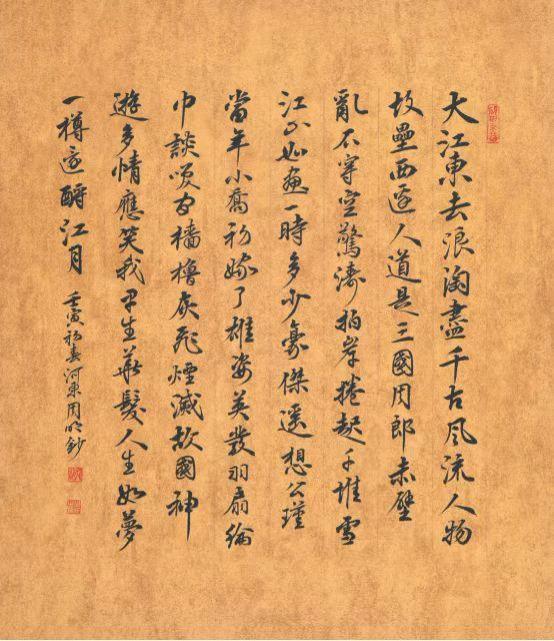 大江東去浪淘盡千古風流人物
故壘西邊人道是三國周郎赤壁
亂石穿空驚濤拍岸捲起千堆雪
江山如畫一時多少豪傑遙想公瑾
當年小喬初嫁了雄姿英發羽扇綸
巾談笑間檣櫓灰飛煙滅故國神
遊多情應笑我早生華髮人生如夢
一樽還酹江月
壬寅初春河東周鈔